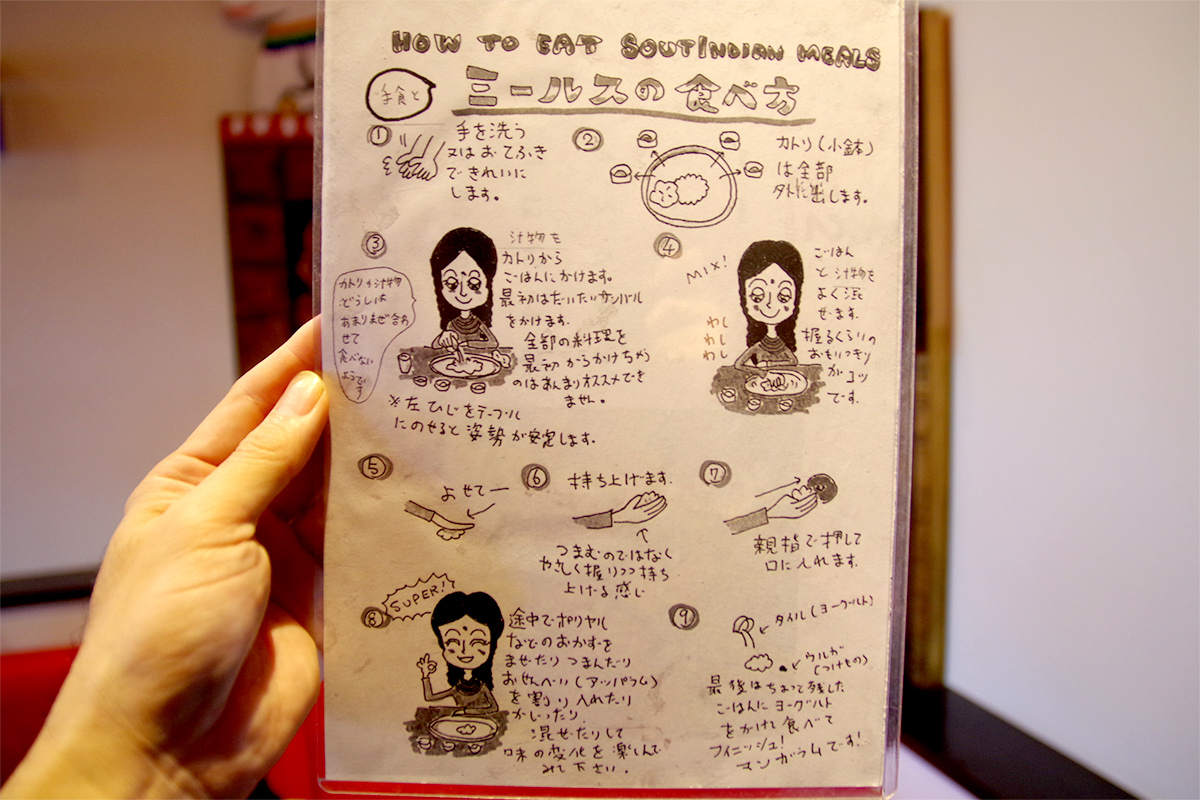 HOW TO EAT SOUTINDIAN MEALS
手食と
ミールスの食べ方
①
手を洗う
又はおてふき
できれいに
します。
②
カトリ(小鉢)
は全部
外に出します。
③
汁物を
カトリから
ごはんにかけます。
最初はだいたいサンバル
をかけます.
全部の料理を
最初からかけちゃう
のはあんまりオススメでき
ません。
カトリの汁物
どうしは
あまりまぜ合わ
せて
食べない
ようです
※左ひじをテーブル
にのせると姿勢が安定します.
④
MIX!
わし
わし
わし
ごはん
と汁物を
よく混
ぜます.
握るくらいの
おもいっきり
がコツ
です.
⑤
よせてー
⑥
持ち上げます.
つまむのではなく
やさしく握りつつ持ち
上げる感じ
⑦
親指で押して
口に入れます.
⑧
SUPER!
途中でポリヤル
などのおかずを
まぜたりつまんだり
おせんべい(アッパラム)
を割り入れたり
かじったり.
混ぜたりして
味の変化を楽しんで
みて下さい.
⑨
タイル(ヨーグルト)
ウルガ
(つけもの)
最後はちょっと残した
ごはんにヨーグルト
をかけて食べて
フィニッシュ!
マンガラムです!